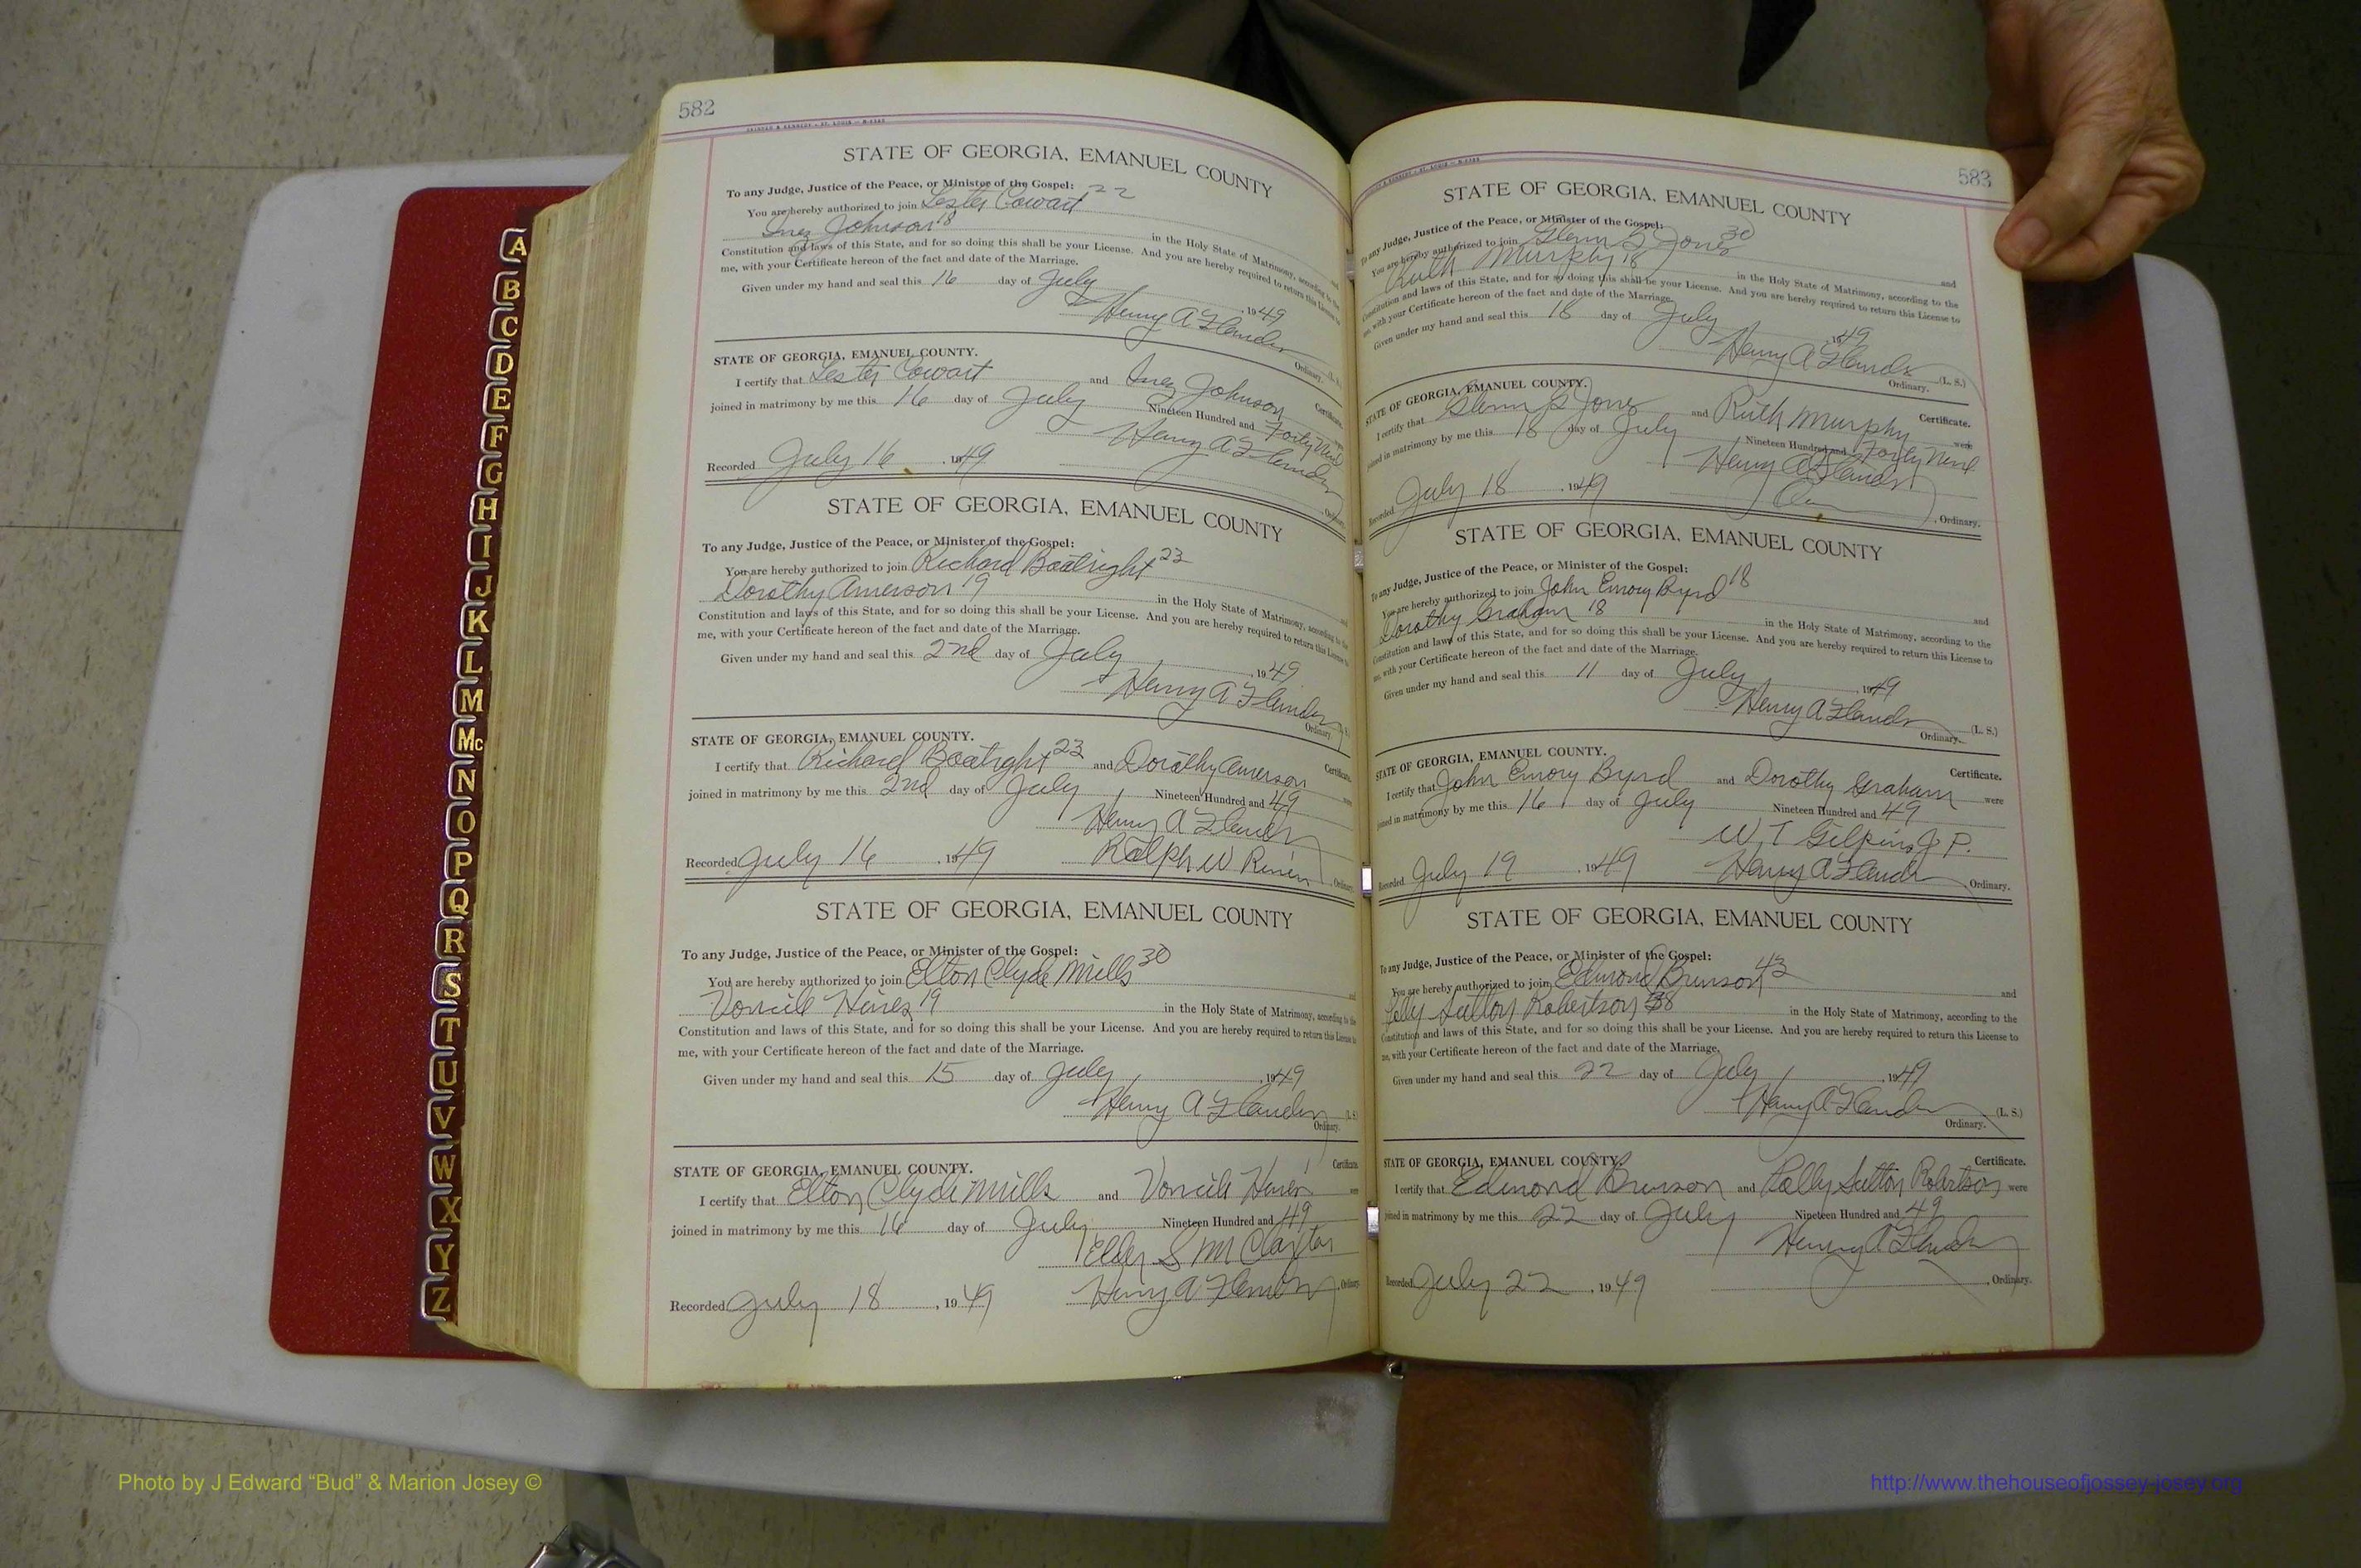 582
SKINNER & KENNEDY - ST. LOUIS
STATE OF GEORGIA, EMANUEL COUNTY
To any Judge, Justice of the Peace, or Minister of the Gospel:
You are hereby authorized to join Lester Cowart 22 and
Inez Johnson 18 in the Holy State of Matrimony, according to the
Constitution and laws of this State, and for so doing this shall be your License. And you are hereby required to return this License to
me, with your Certificate hereon of the fact and date of the Marriage.
Given under my hand and seal this 16 day of July 1949
Henry A Flanders
Ordinary.
STATE OF GEORGIA, EMANUEL COUNTY.
Certificate.
I certify that Lester Cowart and Inez Johnson
joined in matrimony by me this 16 day of July Nineteen Hundred and Forty Nine
Henry A Flanders
Recorded July 16, 1949 Ordinary.
STATE OF GEORGIA, EMANUEL COUNTY
To any Judge, Justice of the Peace, or Minister of the Gospel:
You are hereby authorized to join Richard Boatright 23 and
Dorothy Amerson 19 in the Holy State of Matrimony, according to the
Constitution and laws of this State, and for so doing this shall be your License. And you are hereby required to return this License to
me, with your Certificate hereon of the fact and date of the Marriage.
Given under my hand and seal this 2nd day of July, 1949
Henry A Flanders (L. S.)
Ordinary.
STATE OF GEORGIA, EMANUEL COUNTY.
Certificate.
I certify that Richard Boatright 23 and Dorothy Amerson were
joined in matrimony by me this 2nd day of July, Nineteen Hundred and 49
Henry A Flanders
Recorded July 16, 1949 Ralph W, Ordinary.
STATE OF GEORGIA, EMANUEL COUNTY
To any Judge, Justice of the Peace, or Minister of the Gospel:
You are hereby authorized to join Elton Clyde Mills 30 and
Voncile Hines 19 in the Holy State of Matrimony, according to the
Constitution and laws of this State, and for so doing this shall be your License. And you are hereby required to return this License to
me, with your Certificate hereon of the fact and date of the Marriage.
Given under my hand and seal this 15 day of July, 1949
Henry A Flanders (L. S.)
Ordinary.
STATE OF GEORGIA, EMANUEL COUNTY.
Certificate.
I certify that Elton Clyde Mills and Voncile Hines were
joined in matrimony by me this 16 day of July Nineteen Hundred and 49
Elder S M Claxton
Recorded July 18, 1949 Henry A Flanders, Ordinary.
583
STATE OF GEORGIA, EMANUEL COUNTY
To any Judge, Justice of the Peace, or Minister of the Gospel:
You are hereby authorized to join Glenn G Jones 30 and
Ruth Murphy 18 in the Holy State of Matrimony, according to the
Constitution and laws of this State, and for so doing this shall be your License. And you are hereby required to return this License to
me, with your Certificate hereon of the fact and date of the Marriage.
Given under my hand and seal this 18 day of July, 1949
Henry A Flanders (L. S.)
Ordinary.
STATE OF GEORGIA, EMANUEL COUNTY.
Certificate.
I certify that Glenn G Jones and Ruth Murphy were
joined in matrimony by me this 18 day of July Nineteen Hundred and Forty Nine
Henry A Flanders
Recorded July 18, 1949, Ordinary.
STATE OF GEORGIA, EMANUEL COUNTY
To any Judge, Justice of the Peace, or Minister of the Gospel:
You are hereby authorized to join John Emory Byrd 18 and
Dorothy Graham 18 in the Holy State of Matrimony, according to the
Constitution and laws of this State, and for so doing this shall be your License. And you are hereby required to return this License to
me, with your Certificate hereon of the fact and date of the Marriage.
Given under my hand and seal this 11 day of July, 1949
Henry A Flanders (L. S.)
Ordinary.
STATE OF GEORGIA, EMANUEL COUNTY.
Certificate.
I certify that John Emory Byrd and Dorothy Graham were
joined in matrimony by me this 16 day of July Nineteen Hundred and 49
W. T Gilpin J P.
Recorded July 19, 1949 Henry A Flanders, Ordinary.
STATE OF GEORGIA, EMANUEL COUNTY
To any Judge, Justice of the Peace, or Minister of the Gospel:
You are hereby authorized to join Edmond Brunson 43 and
Sutton Robertson 38 in the Holy State of Matrimony, according to the
Constitution and laws of this State, and for so doing this shall be your License. And you are hereby required to return this License to
me, with your Certificate hereon of the fact and date of the Marriage.
Given under my hand and seal this 22 day of July, 1949
Henry A Flanders (L. S.)
Ordinary.
STATE OF GEORGIA, EMANUEL COUNTY.
Certificate.
I certify that Edmond Brunson and Sutton Robertson were
joined in matrimony by me this 22 day of July Nineteen Hundred and 49
Henry A Flanders
Recorded July 22, 1949, Ordinary.
A
B
C
D
E
F
G
H
I
J
K
L
M
Mc
N
O
P
Q
R
S
T
U
V
W
X
Y
Z
Photo by J Edward “Bud” & Marion Josey ©
http://www.thehouseofjossey-josey.org